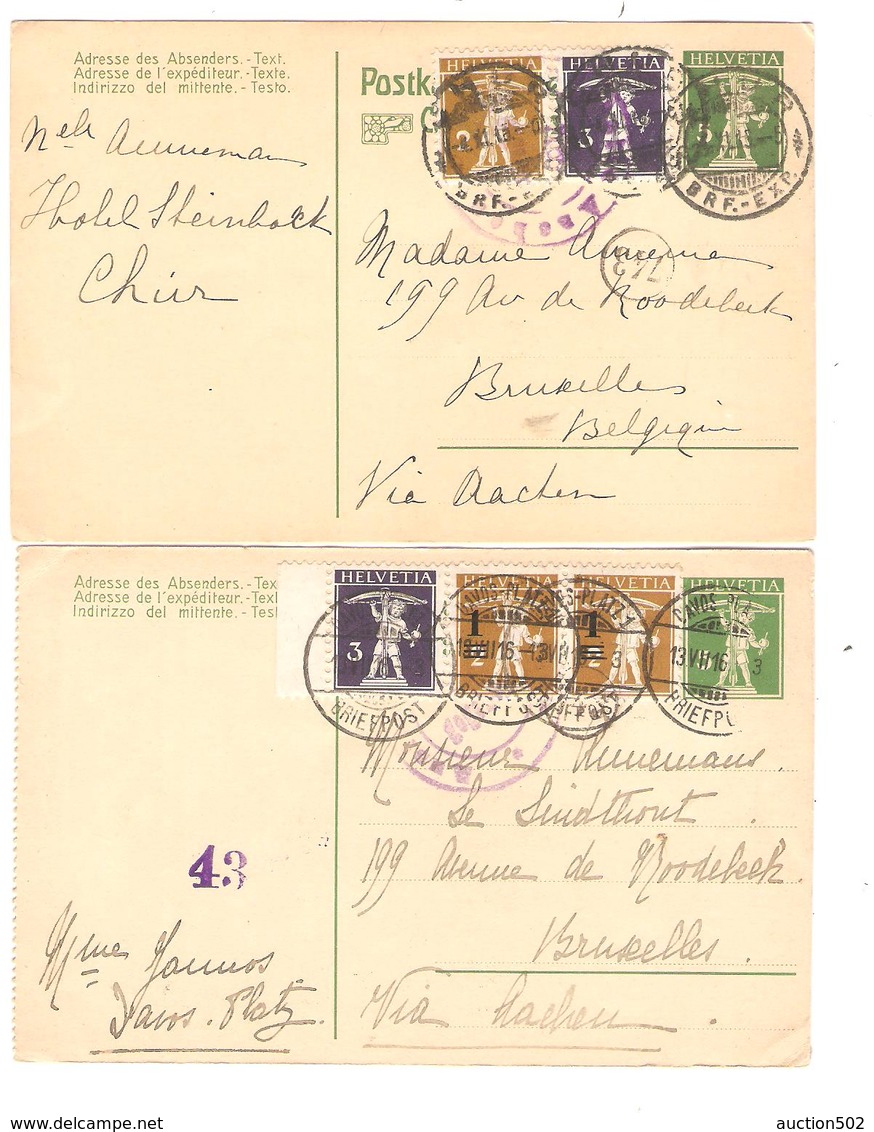 Adresse des Absenders.-Text.
Adresse de l'expéditeur.-Texte.
Indirizzo del mittente.-Testo.
Postk
HELVETIA
2
HELVETIA
3
HELVETIA
5
BRF.-EXP.
Hotel Steinbock
Chur
Madame
743
199 Av de Roodebeek
Bruxelles
Belgique
Via Aachen
Adresse des Absenders.-Tex
Adresse de l'expéditeur.-Text
Indirizzo del mittente.-Test
HELVETIA
3
HELVETIA
1
2
HELVETIA
1
2
HELVETIA
DAVOS-PLATZ 1
13.VII.16.-3
BRIEFPOST
Monsieur Annemans
Le Lindthout
199 Avenue de Roodebeek
Bruxelles
Via Aachen
43
Mme
Davos-Platz
auction502